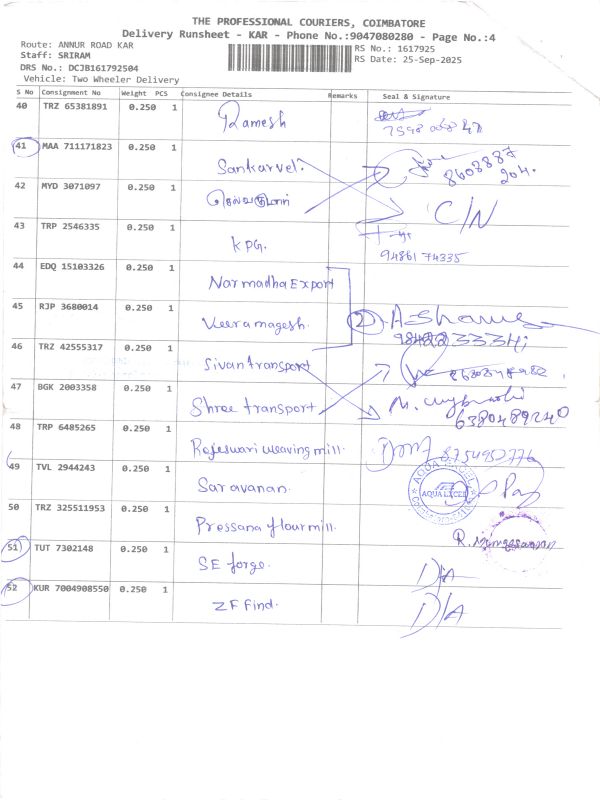 THE PROFESSIONAL COURIERS, COIMBATORE
Delivery Runsheet - KAR - Phone No.:9047080280 - Page No.:4
Route: ANNUR ROAD KAR
RS No.: 1617925
Staff: SRIRAM
RS Date: 25-Sep-2025
DRS No.: DCJB161792504
Vehicle: Two Wheeler Delivery
S No Consignment No Weight PCS Consignee Details Remarks Seal & Signature
40 TRZ 65381891 0.250 1 Ramesh
41 MAA 711171823 0.250 1 Sankarvel.
8608887
204.
42 MYD 3071097 0.250 1
C/N
43 TRP 2546335 0.250 1 KPG.
9486174335
44 EDQ 15103326 0.250 1 Narmadha Export
45 RJP 3680014 0.250 1 Veeramagesh.
2
46 TRZ 42555317 0.250 1 Sivan transport
47 BGK 2003358 0.250 1 Shree transport
6380489240
48 TRP 6485265 0.250 1 Rajeswari weaving mill.
49 TVL 2944243 0.250 1 Saravanan.
50 TRZ 325511953 0.250 1 Pressana flour mill.
51 TUT 7302148 0.250 1 SE forge.
D/A
52 KUR 7004908550 0.250 1 ZF Find.
D/A